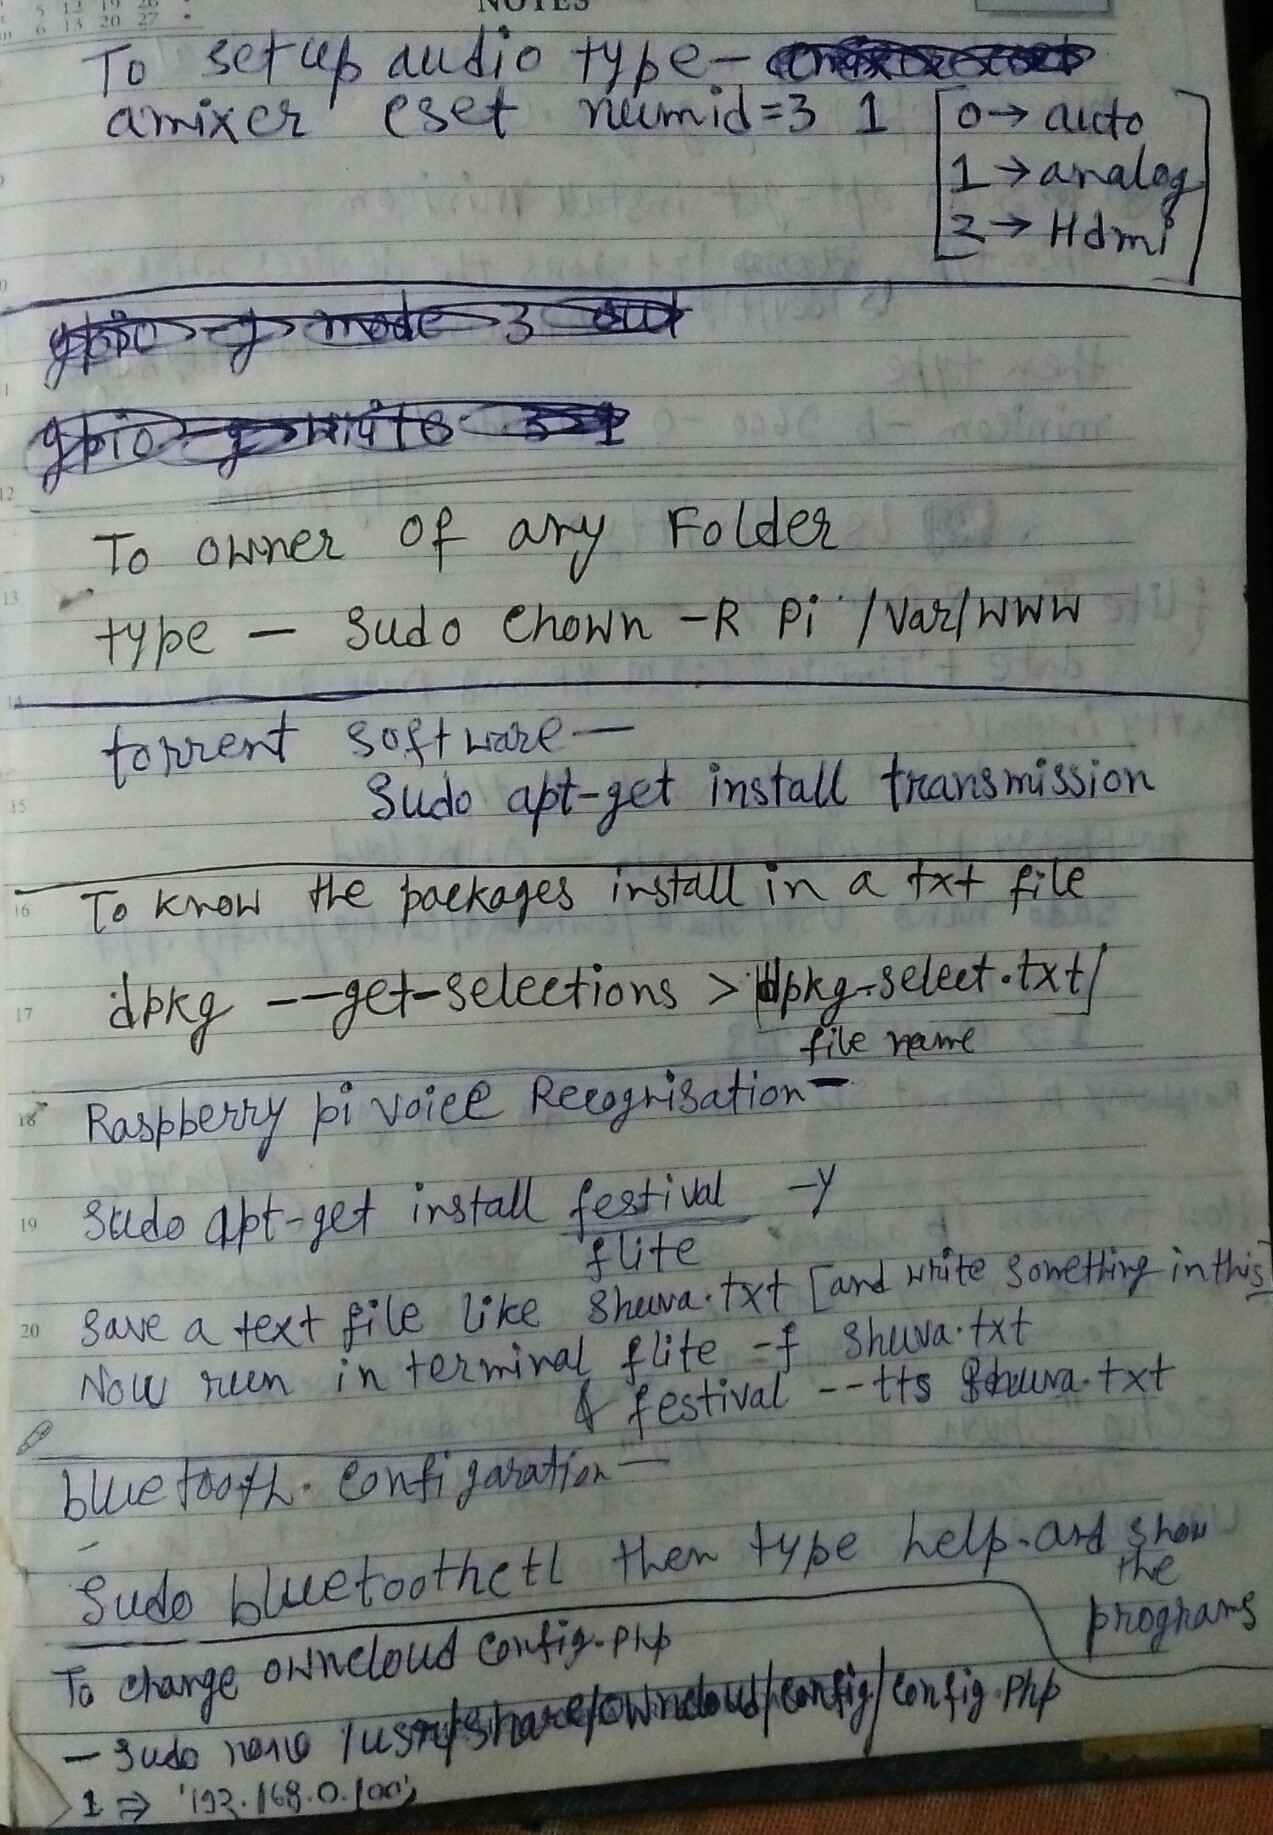 5 12 19 26
6 13 20 27
NOTES
To setup audio type-
amixer cset numid=3 1 [0→ auto
1→analog
2→ Hdmi]
gpio -g mode 3 out
gpio -g write 3 1
12
To owner of any Folder
13
type — Sudo chown -R Pi /var/www
14
torrent software—
15
Sudo apt-get install transmission
16
To know the packages install in a txt file
17
dpkg --get-selections > dpkg-select.txt
file name
18
Raspberry pi voice Recognisation-
19
Sudo apt-get install festival -y
flite
20
Save a text file like Shuva.txt [and write something in this]
Now run in terminal flite -f Shuva.txt
& festival --tts Shuva.txt
bluetooth. configaration—
Sudo bluetoothctl then type help. and show
the
programs
To change owncloud config.php
— Sudo nano /usr/share/owncloud/config/config.php
1 ⇒ '192.168.0.100',